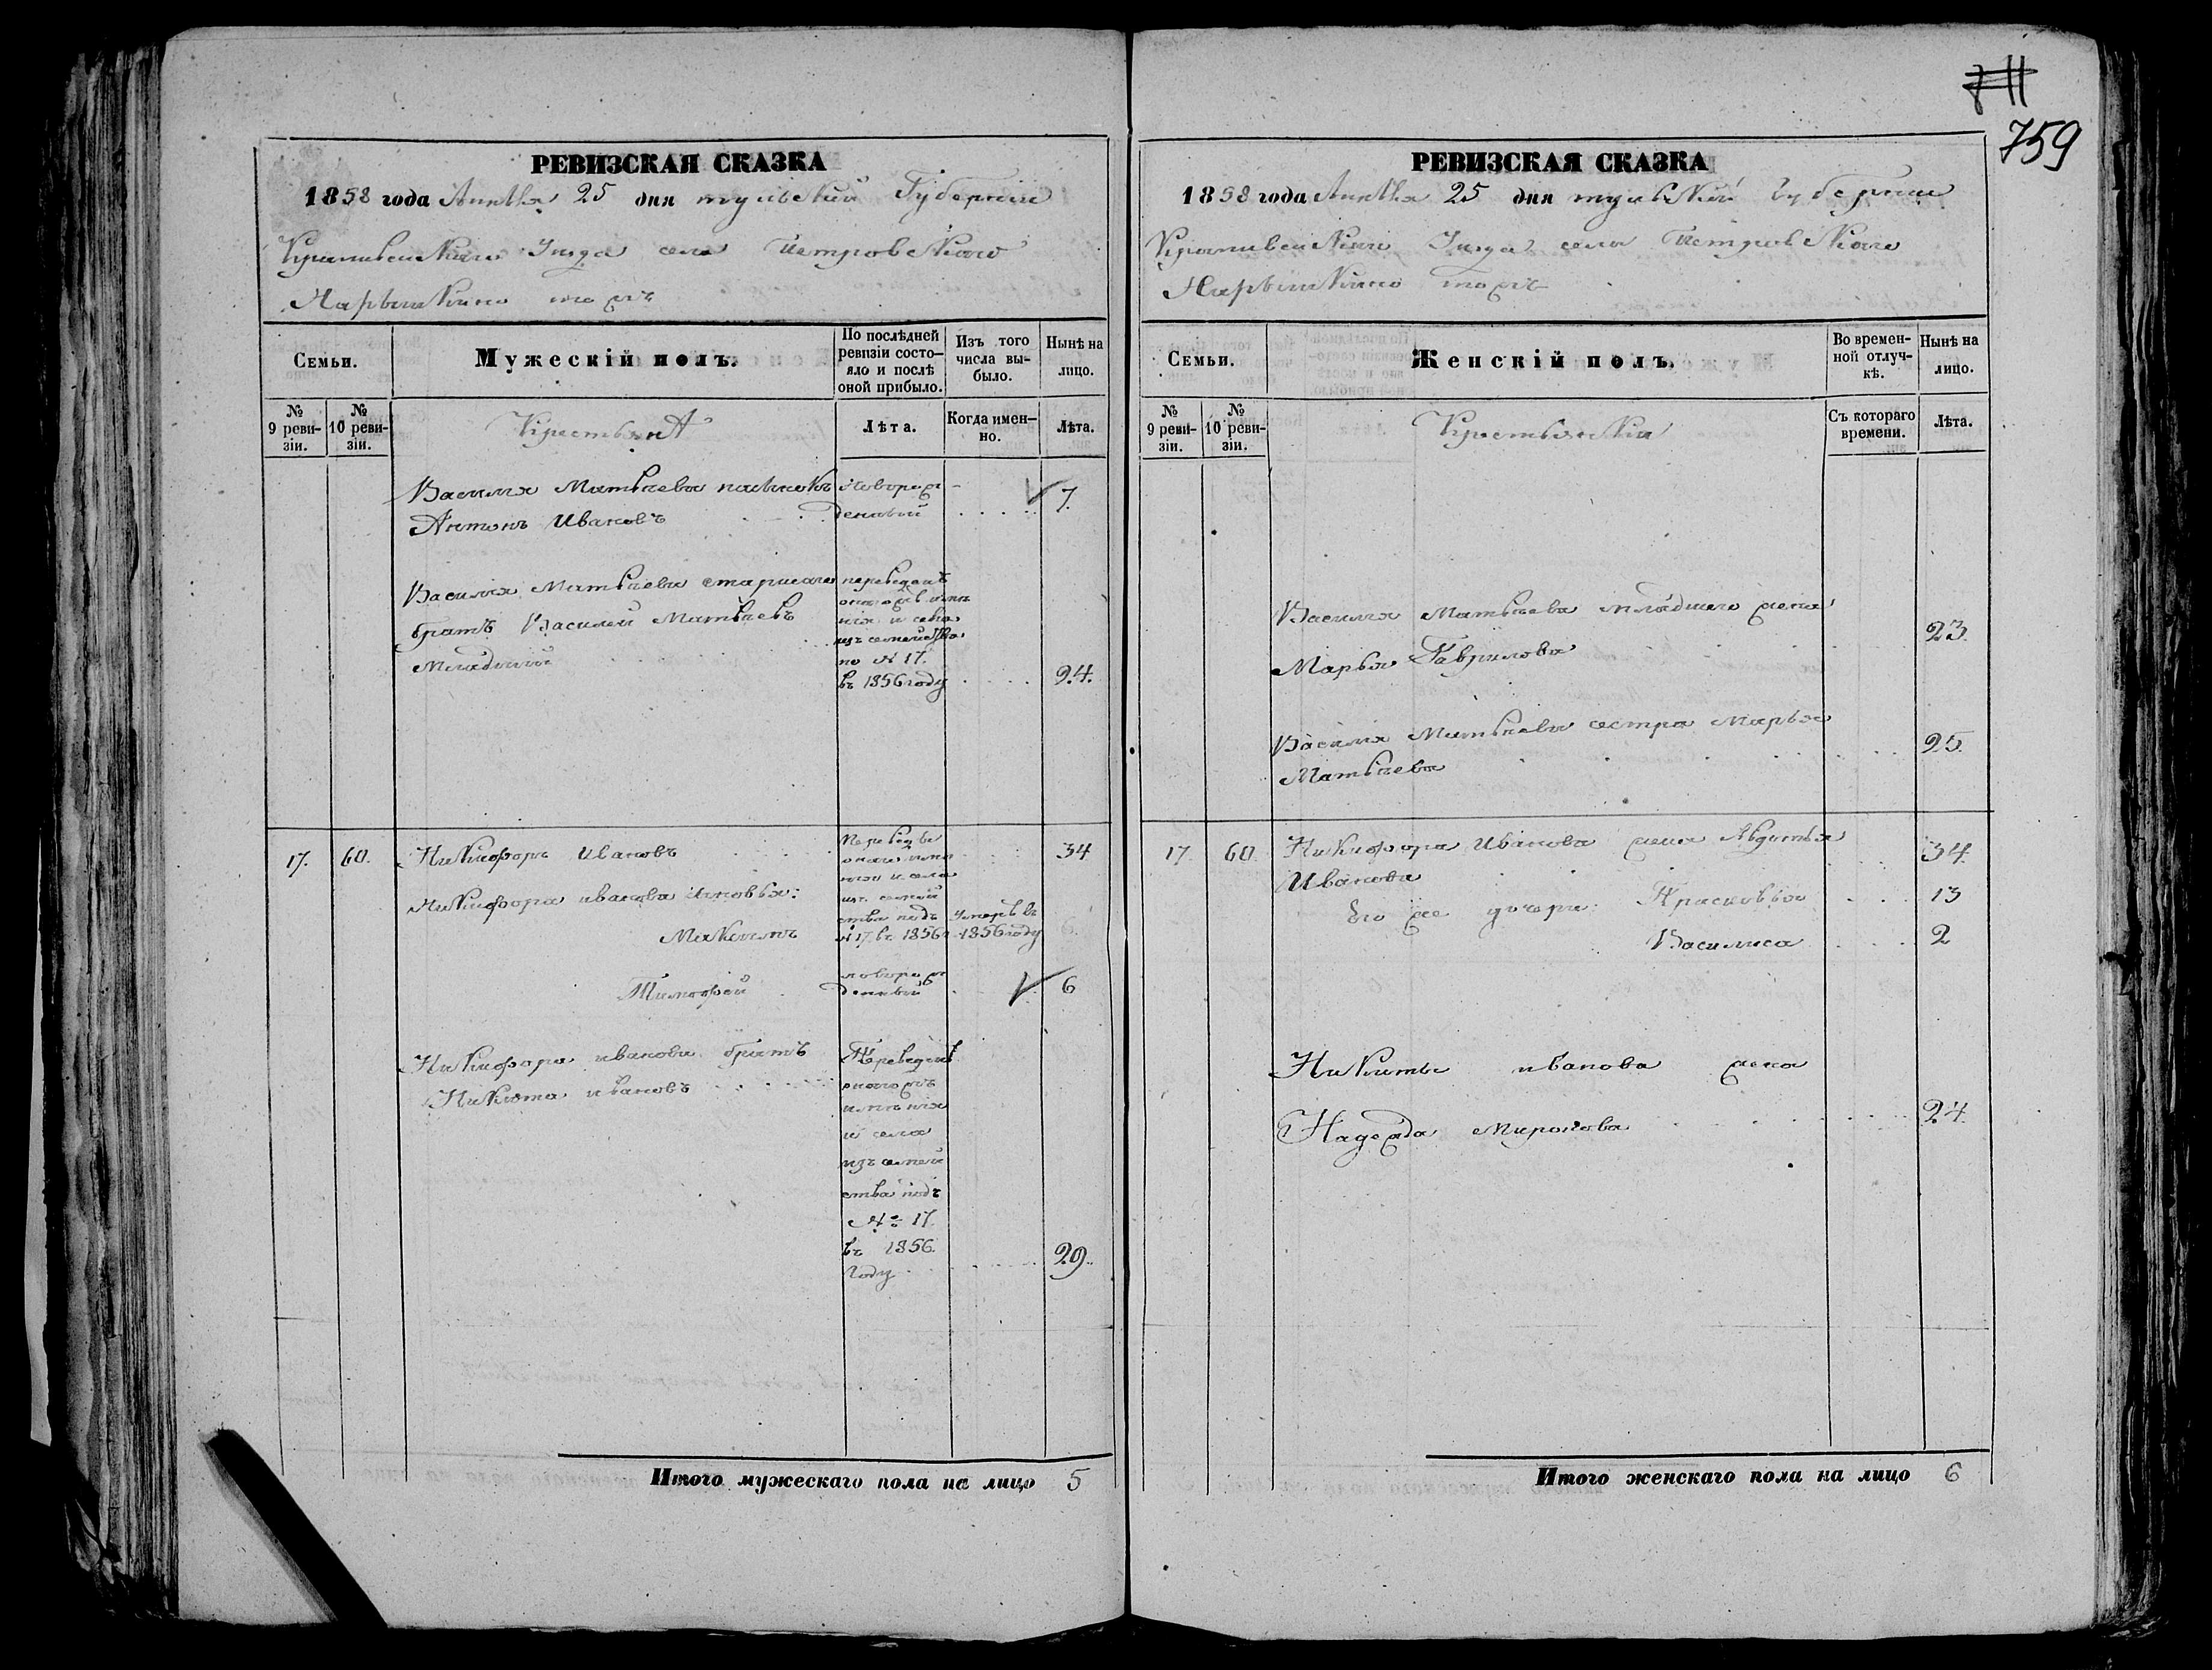 711
759
РЕВИЗСКАЯ СКАЗКА
1858 года Апреля 25 дня тульской Губернии
Крапивенского Уезда села Петровского
Нарышкино тожъ
Семьи.
Мужескій полъ.
По послѣдней ревизіи состо-яло и послѣ оной прибыло.
Изъ того числа вы-было.
Нынѣ на лицо.
№ 9 реви-зіи.
№ 10 реви-зіи.
Крестьяне
Лѣта.
Когда имен-но.
Лѣта.
Василья Матвѣева племянникъ новорож-
Антонъ Ивановъ денный 7.
Василья Матвѣева старшаго переведенъ
братъ Василей Матвѣевъ
Младший
изъ семейства
по № 17.
въ 1856 году 24.
17. 60. Никифоръ Ивановъ 34
Никифора иванова сыновья:
Максимъ № 17 въ 1856 умеръ въ 1856 году
Тимофей новорож
денный 6
Никифора иванова братъ Переведенъ
Никита ивановъ оногожъ
имѣнія
и села
изъ семей
ства подъ
№ 17.
въ 1856.
году 29.
Итого мужескаго пола на лицо 5
РЕВИЗСКАЯ СКАЗКА
1858 года Апреля 25 дня тульской губернии
Крапивенского Уезда села Петровского
Нарышкино тожъ
Семьи.
Женскій полъ.
Во времен-ной отлуч-кѣ.
Нынѣ на лицо.
№ 9 реви-зіи.
№ 10 реви-зіи.
Крестьянки
Съ котораго времени.
Лѣта.
Василья Матвѣева младшего жена
Марья Гаврилова 23.
Василья Матвѣева сестра Марья
Матвѣева 25.
17 60. Никифора Иванова жена Авдотья
Иванова 34.
Его же дочери: Прасковья 13
Василиса 2
Никиты иванова жена
Надежда Миронова 24.
Итого женскаго пола на лицо 6